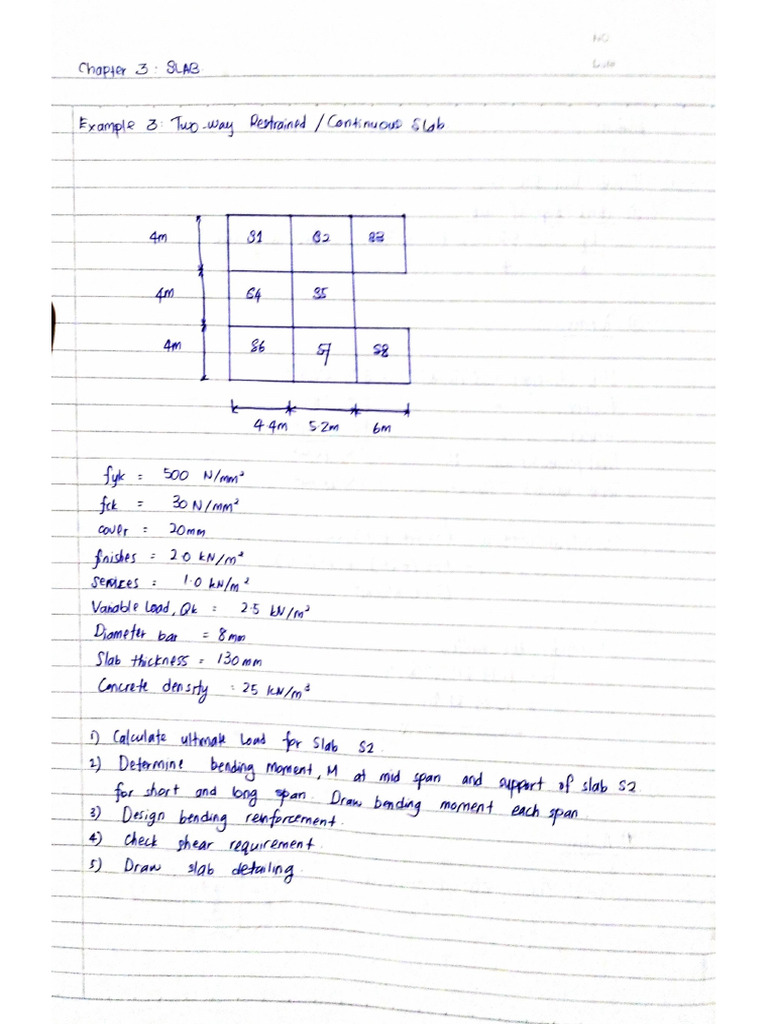 NO
Date
Chapter 3: SLAB.
Example 3: Two-way Restrained / Continuous Slab
4m S1 S2 S3
4m S4 S5
4m S6 S7 S8
4.4m 5.2m 6m
fyk = 500 N/mm²
fck = 30 N/mm²
cover = 20mm
finishes = 2.0 kN/m²
services = 1.0 kN/m²
Variable load, Qk = 2.5 kN/m²
Diameter bar = 8mm
Slab thickness = 130mm
Concrete density = 25 kN/m³
1) Calculate ultimate load for Slab S2.
2) Determine bending moment, M at mid span and support of slab S2
for short and long span. Draw bending moment each span.
3) Design bending reinforcement.
4) Check shear requirement.
5) Draw slab detailing.